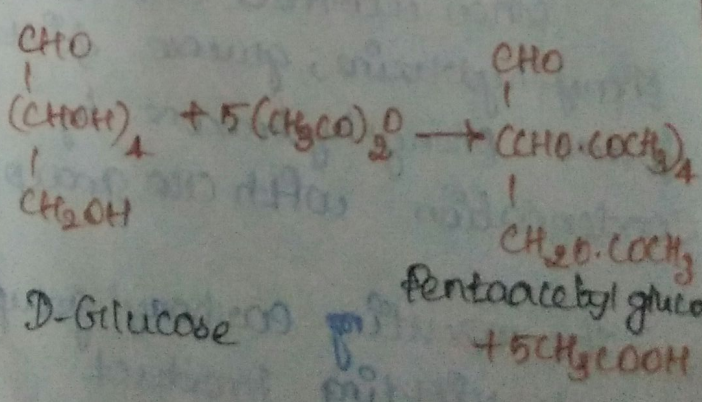 CHO
(CHOH)4 + 5(CH3CO)2O → 
CH2OH
D-Glucose
CHO
(CHO.COCH3)4
CH2O.COCH3
Pentaacetyl gluco
+5CH3COOH